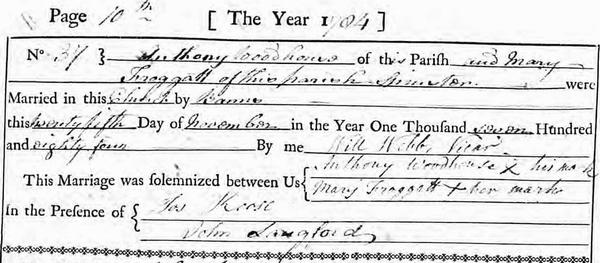 Page 10th [ The Year 1784 ]
No 37 } Anthony Woodhouse of this Parish and Mary
Froggatt of this parish Spinster were
Married in this Church by Banns
this twenty fifth Day of November in the Year One Thousand seven Hundred
and eighty four By me Will Webb, Vicar
This Marriage was solemnized between Us { Anthony Woodhouse X his mark
Mary Froggatt + her marke
In the Presence of { Jos
John Langford